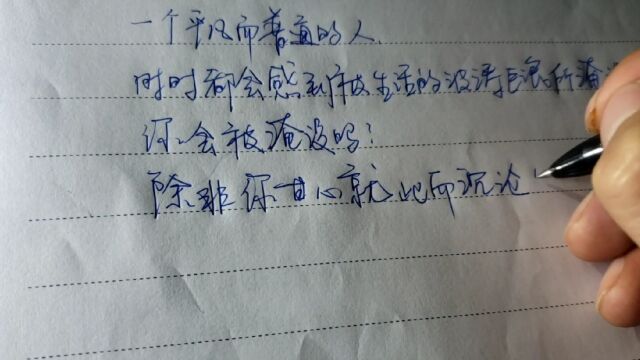 一个平凡而普通的人
时时都会感到被生活的波涛巨浪所淹
你会被淹没吗?
除非你甘心就此而沉沦